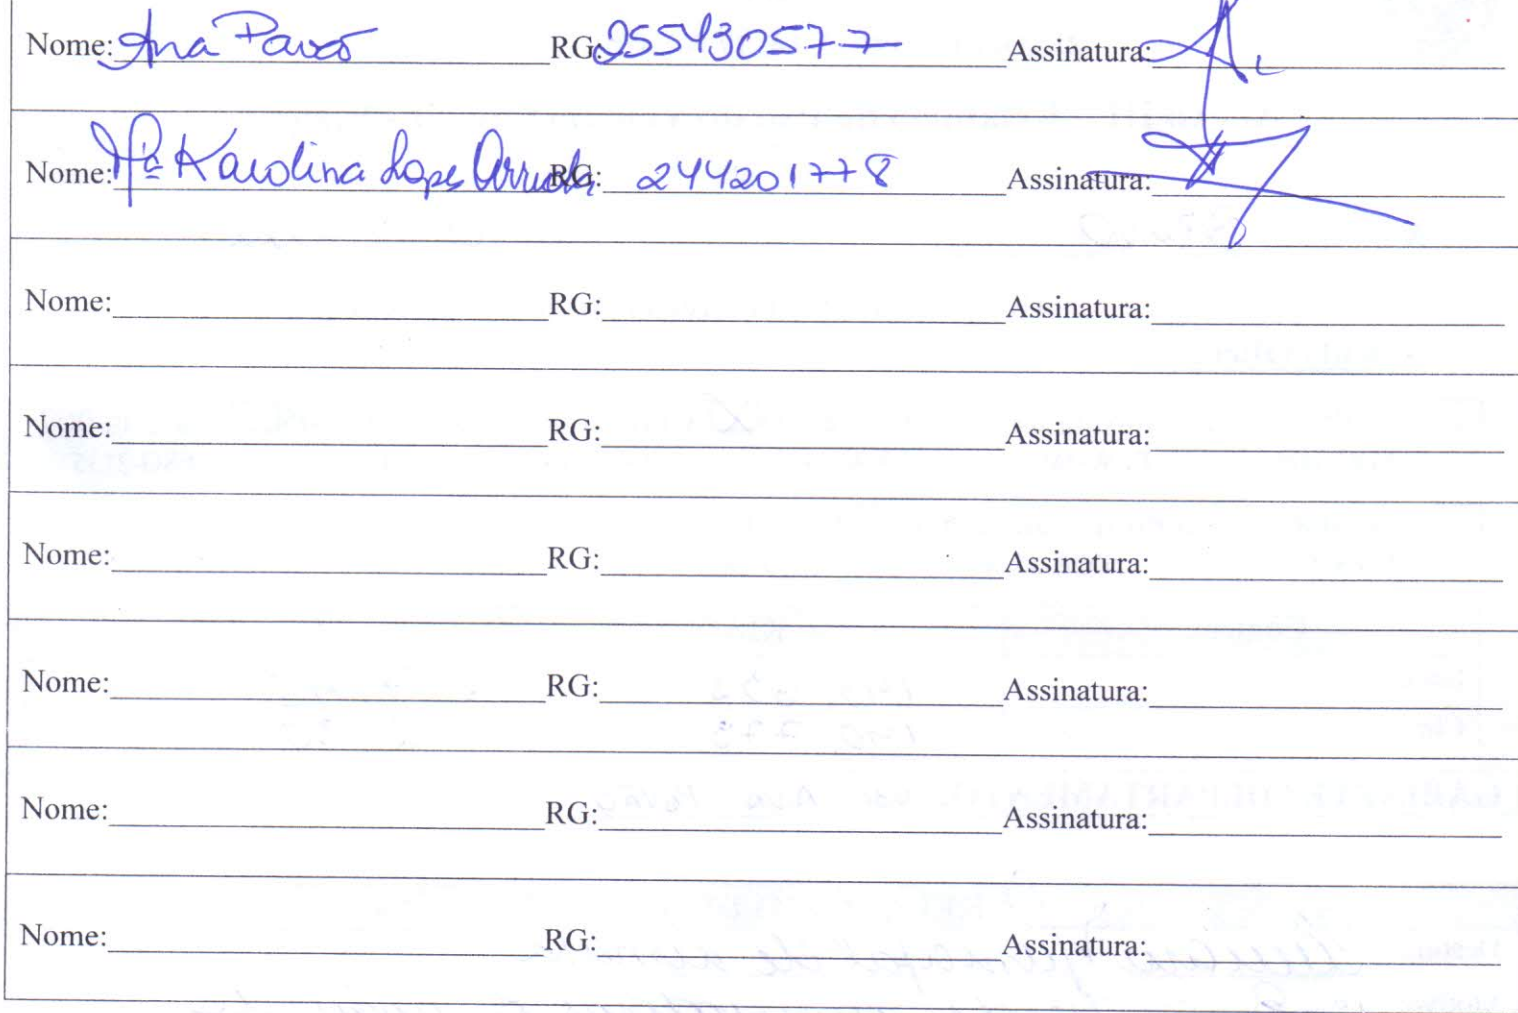 Nome: Ana Pavão RG: 255430577 Assinatura:
Nome: Mª Karolina Lopes Arruda RG: 244201778 Assinatura:
Nome: RG: Assinatura:
Nome: RG: Assinatura:
Nome: RG: Assinatura:
Nome: RG: Assinatura:
Nome: RG: Assinatura:
Nome: RG: Assinatura: